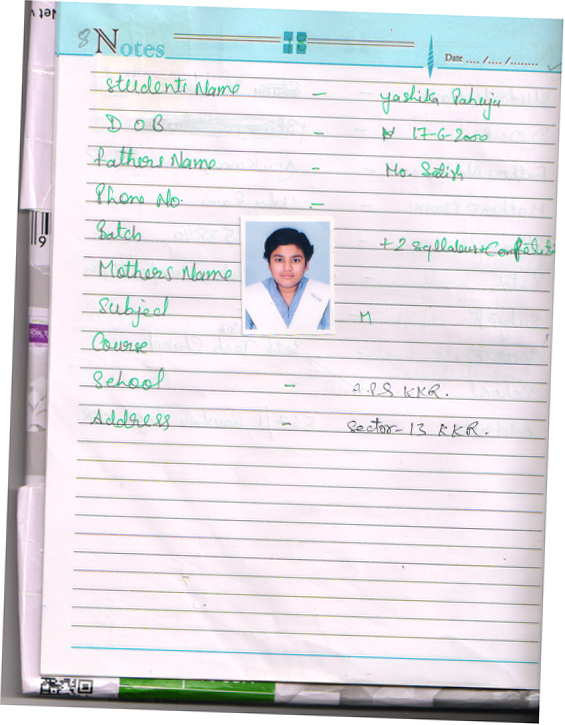 8 Notes
Date ..../..../........
Students Name - Yashika Pahuja
D O B - 17-6-2000
Fathers Name - Mo. Satish
Phone No. -
Batch +2 Syllabus+
Mothers Name
Subject M
Course
School - A.P.S. KKR.
Address - Sector-13 KKR.